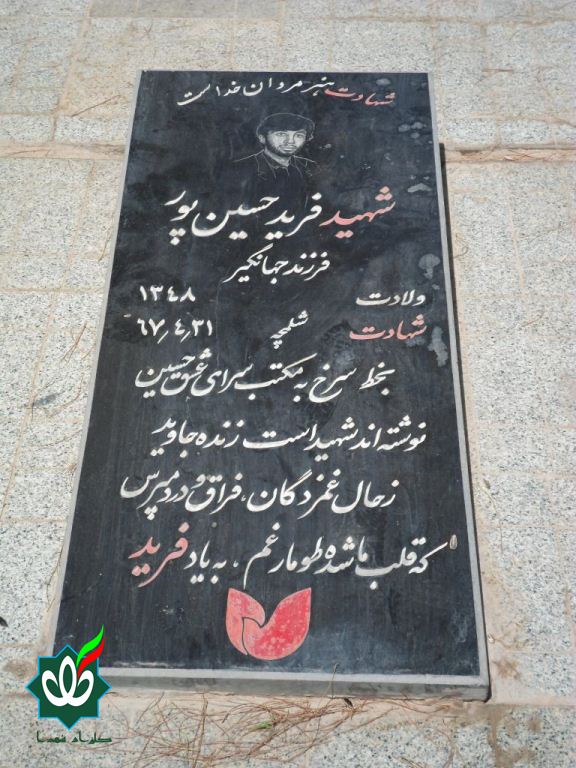 شهادت هنر مردان خداست
شهید فرید حسین پور
فرزند جهانگیر
ولادت ۱۳۴۸
شهادت شلمچه ۶۷٫۴٫۳۱
بخط سرخ به مکتب سرای عشق حسین
نوشته اند شهید است زنده جاوید
زحال غمزدگان، فراق و درد مپرس
که قلب ما شده طومار غم، به یاد فرید